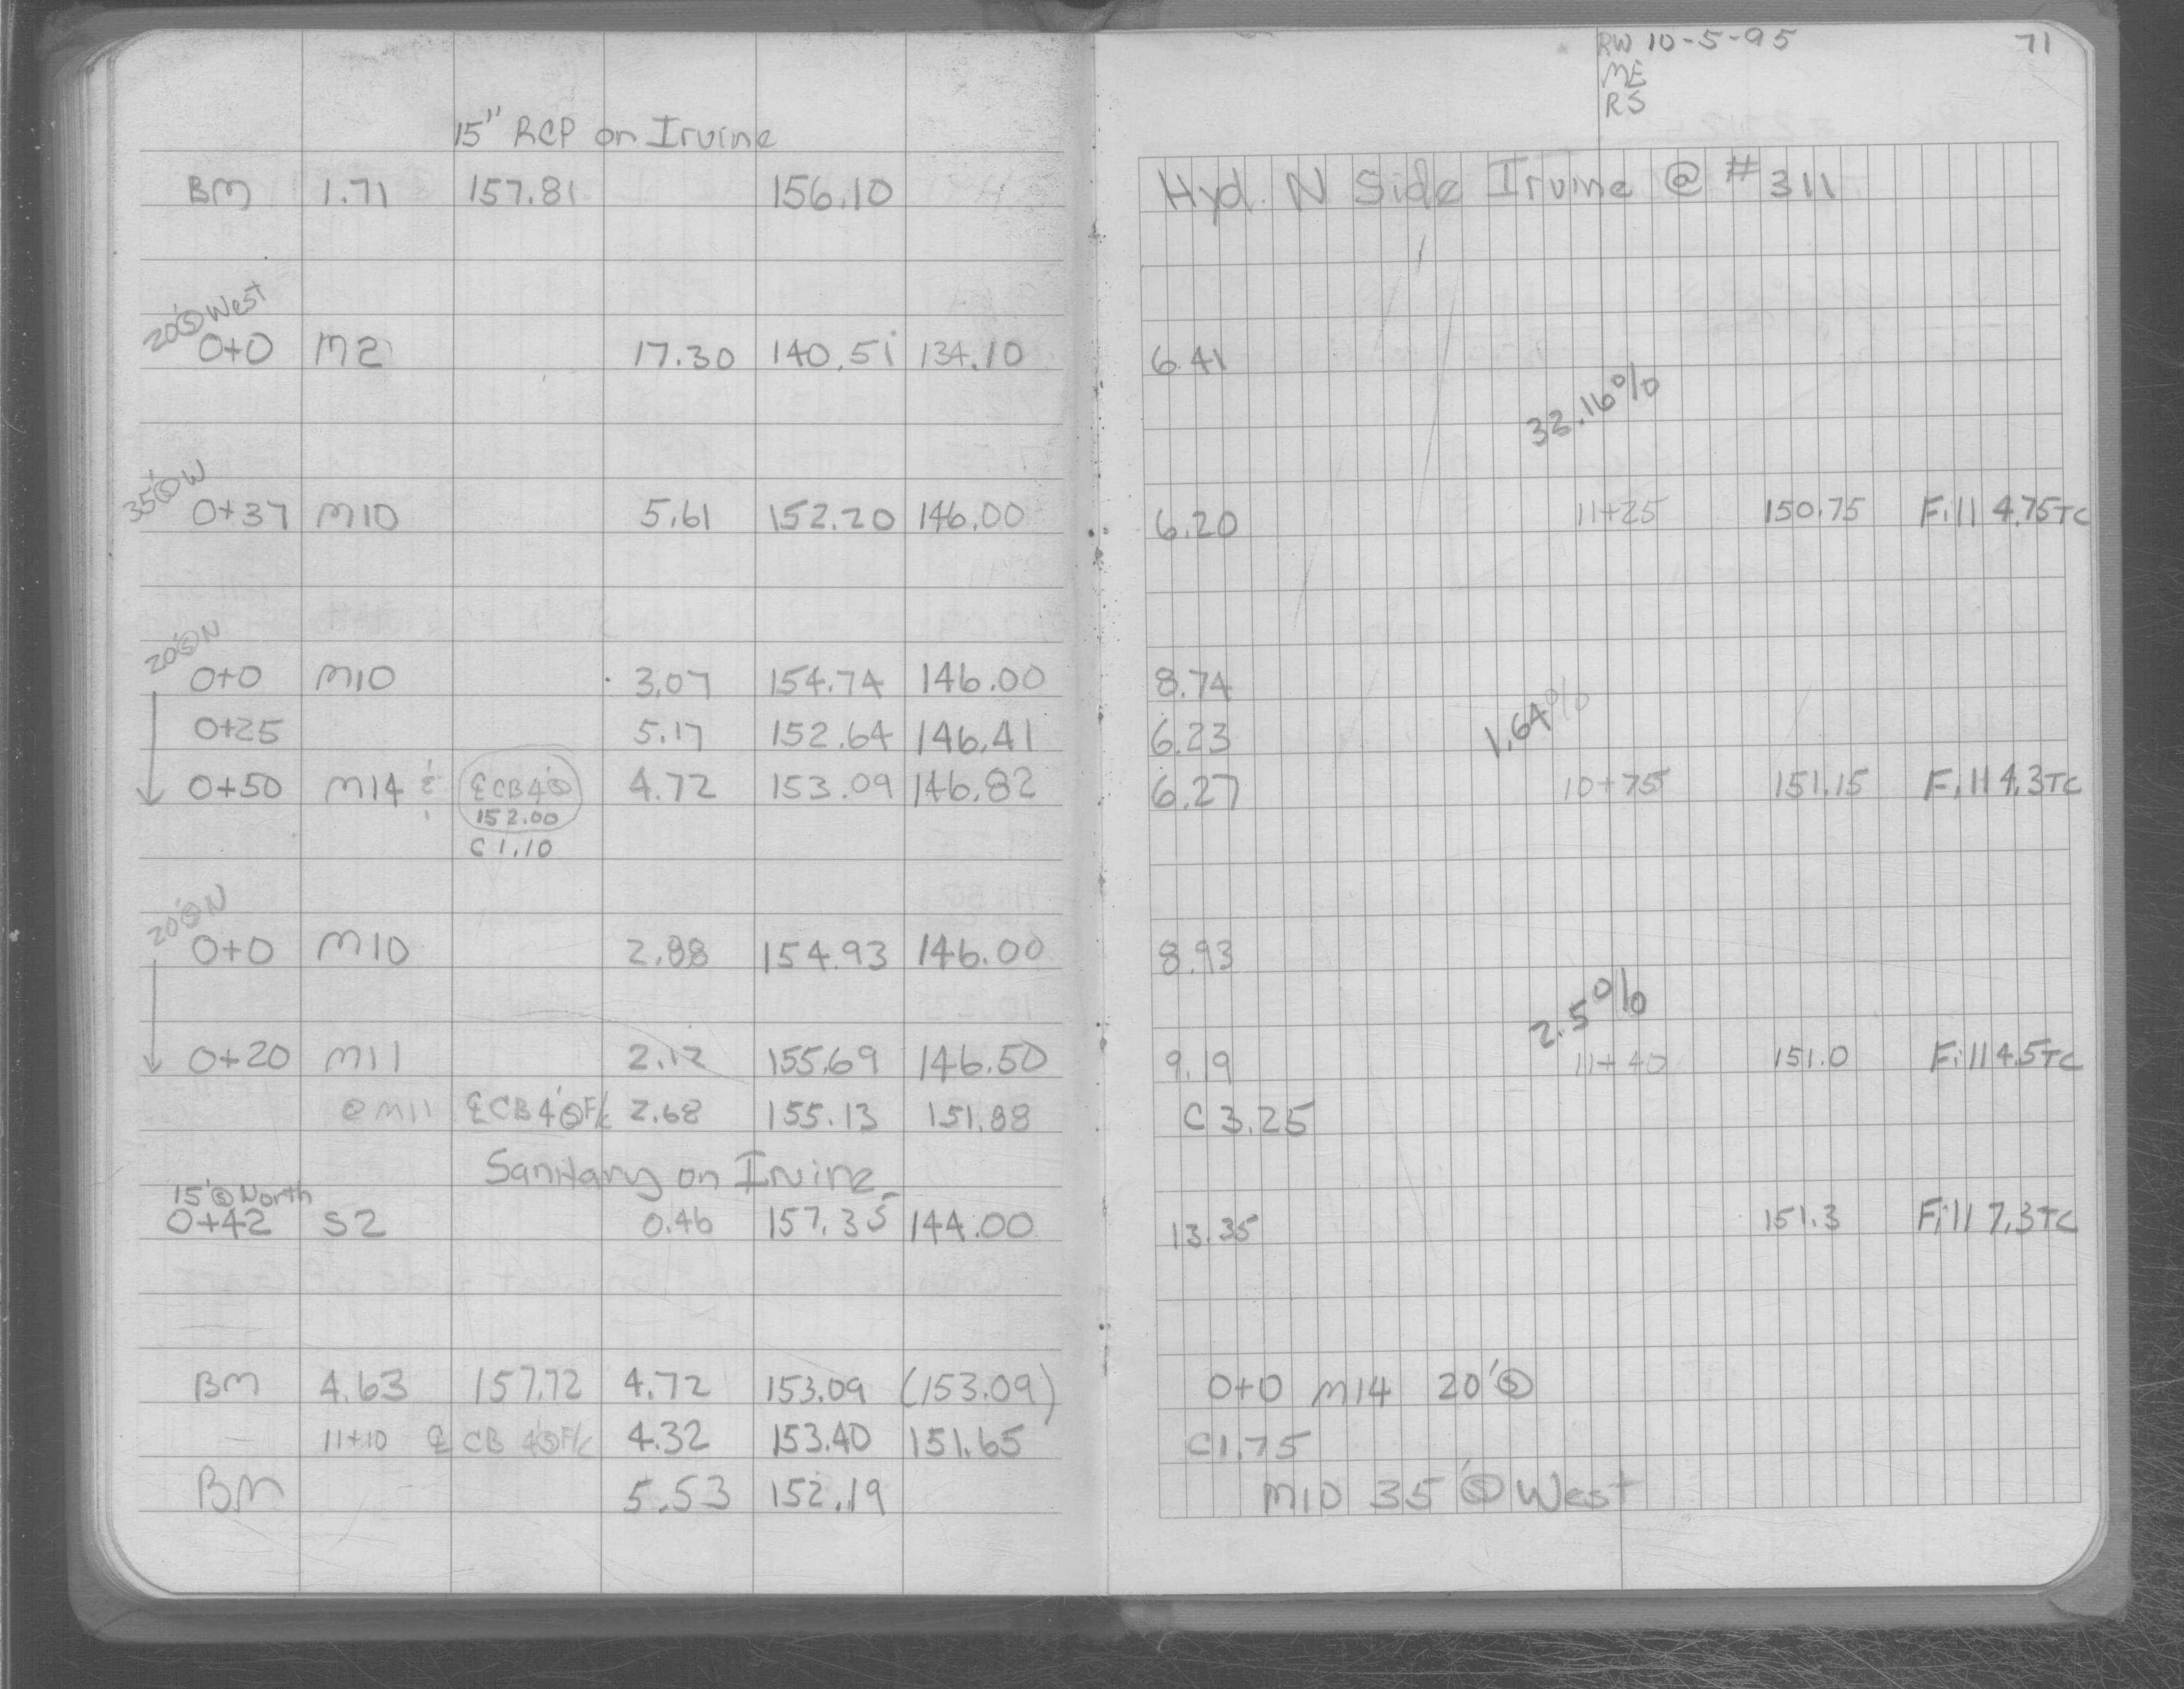 RW 10-5-95 71
ME
RS
15" RCP on Irvine
BM 1.71 157.81 156.10 Hyd. N Side Irvine @ #311
20'Ⓢ West
0+0 M2 17.30 140.51 134.10 6.41
32.16%
35'Ⓢ W
0+37 M10 5.61 152.20 146.00 6.20 11+25 150.75 Fill 4.75TC
20'Ⓢ N
0+0 M10 3.07 154.74 146.00 8.74
0+25 5.17 152.64 146.41 6.23 1.64%
0+50 M14 ℄ ℄ CB 4'Ⓢ 4.72 153.09 146.82 6.27 10+75 151.15 Fill 4.3TC
152.00
C 1.10
20'Ⓢ N
0+0 M10 2.88 154.93 146.00 8.93
2.5%
0+20 M11 2.12 155.69 146.50 9.19 11+40 151.0 Fill 4.5TC
@ M11 ℄ CB 4'Ⓢ F/C 2.68 155.13 151.88 C 3.25
Sanitary on Irvine
15'Ⓢ North
0+42 S2 0.46 157.35 144.00 13.35 151.3 Fill 7.3TC
BM 4.63 157.72 4.72 153.09 (153.09) 0+0 M14 20'Ⓢ
11+10 ℄ CB 4'Ⓢ F/C 4.32 153.40 151.65 C1.75
BM 5.53 152.19 M10 35'Ⓢ West